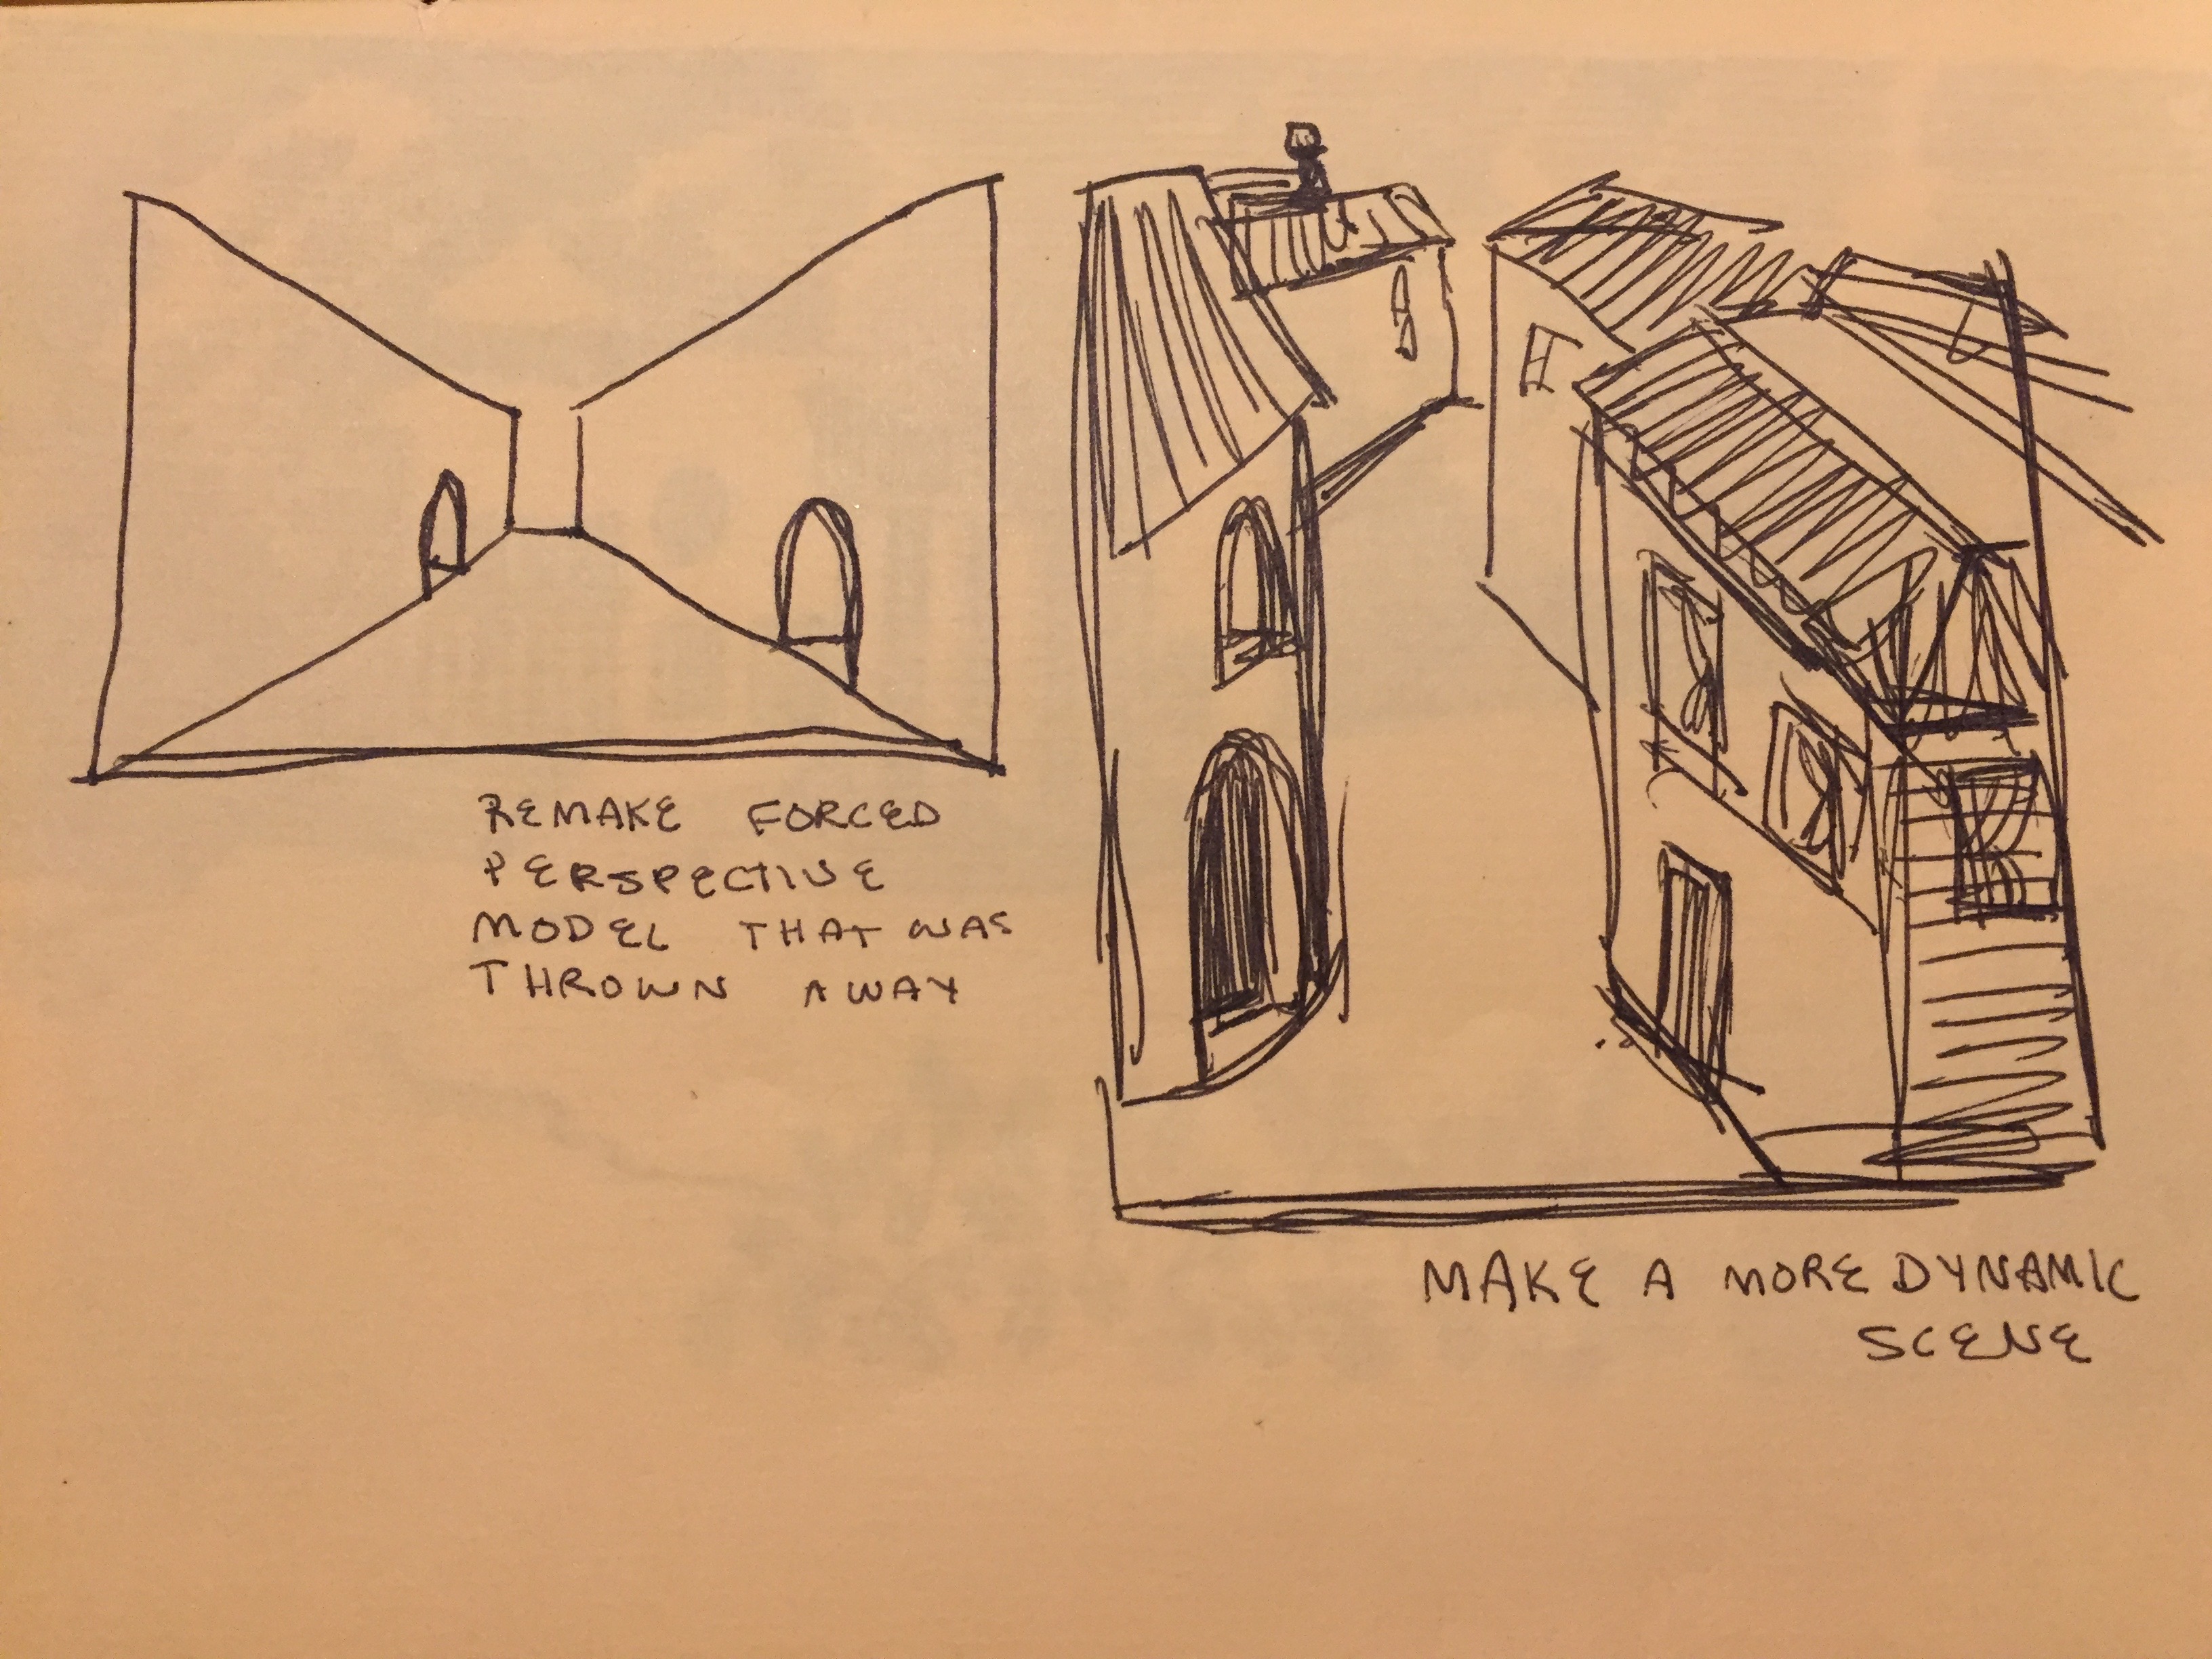 REMAKE FORCED
PERSPECTIVE
MODEL THAT WAS
THROWN AWAY
MAKE A MORE DYNAMIC
SCENE